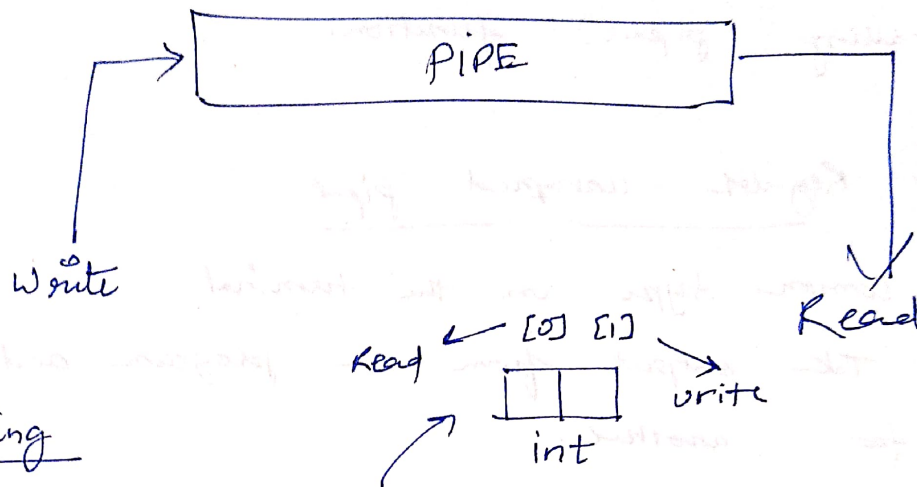 PiPE
Write
Read
[0] [1]
Read
write
int
ing